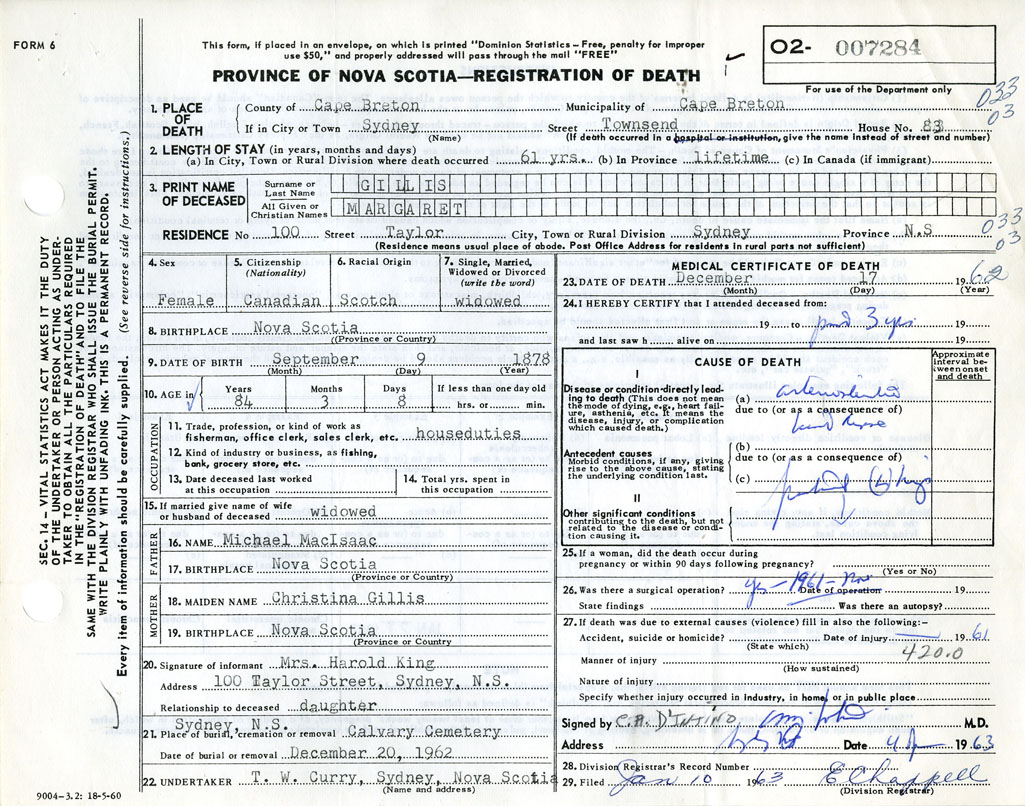 FORM 6
This form, if placed in an envelope, on which is printed "Dominion Statistics – Free, penalty for improper
use $50," and properly addressed will pass through the mail "FREE"
PROVINCE OF NOVA SCOTIA—REGISTRATION OF DEATH
O2- 007284
For use of the Department only
033
03
1. PLACE OF DEATH County of Cape Breton Municipality of Cape Breton
If in City or Town Sydney Street Townsend House No. 83
(Name) (If death occurred in a hospital or institution, give the name instead of street and number)
2. LENGTH OF STAY (in years, months and days)
(a) In City, Town or Rural Division where death occurred 61 yrs. (b) In Province lifetime (c) In Canada (if immigrant)
3. PRINT NAME OF DECEASED
Surname or Last Name GILLIS
All Given or Christian Names MARGARET
033
03
RESIDENCE No 100 Street Taylor City, Town or Rural Division Sydney Province N.S
(Residence means usual place of abode. Post Office Address for residents in rural parts not sufficient)
4. Sex Female
5. Citizenship (Nationality) Canadian
6. Racial Origin Scotch
7. Single, Married, Widowed or Divorced (write the word) widowed
8. BIRTHPLACE Nova Scotia
(Province or Country)
9. DATE OF BIRTH September 9 1878
(Month) (Day) (Year)
10. AGE in Years 84 Months 3 Days 8 If less than one day old hrs. or min.
OCCUPATION
11. Trade, profession, or kind of work as
fisherman, office clerk, sales clerk, etc. houseduties
12. Kind of industry or business, as fishing,
bank, grocery store, etc.
13. Date deceased last worked
at this occupation
14. Total yrs. spent in
this occupation
15. If married give name of wife
or husband of deceased widowed
FATHER
16. NAME Michael MacIsaac
17. BIRTHPLACE Nova Scotia
(Province or Country)
MOTHER
18. MAIDEN NAME Christina Gillis
19. BIRTHPLACE Nova Scotia
(Province or Country
20. Signature of informant Mrs. Harold King
Address 100 Taylor Street, Sydney, N.S.
Relationship to deceased daughter
Sydney, N.S.
21. Place of burial, cremation or removal Calvary Cemetery
Date of burial or removal December 20, 1962
22. UNDERTAKER T. W. Curry, Sydney, Nova Scotia
(Name and address)
9004—3.2: 18-5-60
MEDICAL CERTIFICATE OF DEATH
23. DATE OF DEATH December 17 1962
(Month) (Day) (Year)
24. I HEREBY CERTIFY that I attended deceased from:
19 to past 3 yrs 19
and last saw h alive on 19
CAUSE OF DEATH
Approximate interval between onset and death
I
Disease or condition directly leading to death (This does not mean
the mode of dying, e.g., heart failure, asthenia, etc. It means the
disease, injury, or complication
which caused death.)
(a)
due to (or as a consequence of)
Antecedent causes
Morbid conditions, if any, giving
rise to the above cause, stating
the underlying condition last.
(b)
due to (or as a consequence of)
(c)
II
Other significant conditions
contributing to the death, but not
related to the disease or condition causing it.
25. If a woman, did the death occur during
pregnancy or within 90 days following pregnancy?
(Yes or No)
26. Was there a surgical operation? yes - 1961 - Nov Date of operation 19
State findings Was there an autopsy?
27. If death was due to external causes (violence) fill in also the following:–
Accident, suicide or homicide? Date of injury 1961
(State which)
420.0
Manner of injury
(How sustained)
Nature of injury
Specify whether injury occurred in industry, in home, or in public place
Signed by C.A. D'INTINO M.D.
Address Date 4 1963
28. Division Registrar's Record Number
29. Filed Jan 10 1963 E Chappell
(Division Registrar)
SEC. 14 – VITAL STATISTICS ACT MAKES IT THE DUTY
OF THE UNDERTAKER OR PERSON ACTING AS UNDERTAKER TO OBTAIN ALL THE PARTICULARS REQUIRED
IN THE "REGISTRATION OF DEATH" AND TO FILE THE
SAME WITH THE DIVISION REGISTRAR WHO SHALL ISSUE THE BURIAL PERMIT.
WRITE PLAINLY WITH UNFADING INK. THIS IS A PERMANENT RECORD.
Every item of information should be carefully supplied. (See reverse side for instructions.)